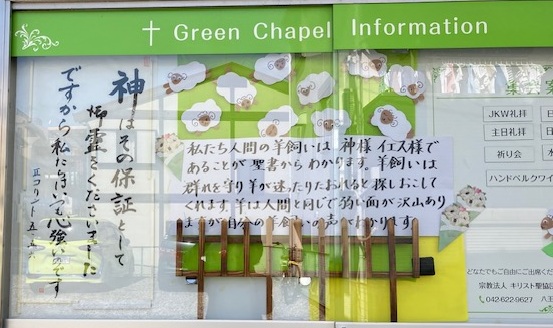 ✝ Green Chapel Information
神はその保証として
御霊をくださいました
ですから私たちはいつも心強いのです
私たち人間の羊飼いは、神様 イエス様で
あることが 聖書から わかります。羊飼いは
群れを守り羊が迷ったりたおれると 探しおこして
くれます。羊は人間と同じで弱い面が沢山あり
ますが自分の羊飼いの声でわかります
JKW礼拝
主日礼拝
祈り会
ハンドベルクワイ
どなたでもご自由にご出席くだ
宗教法人 キリスト聖協団
042-622-9627